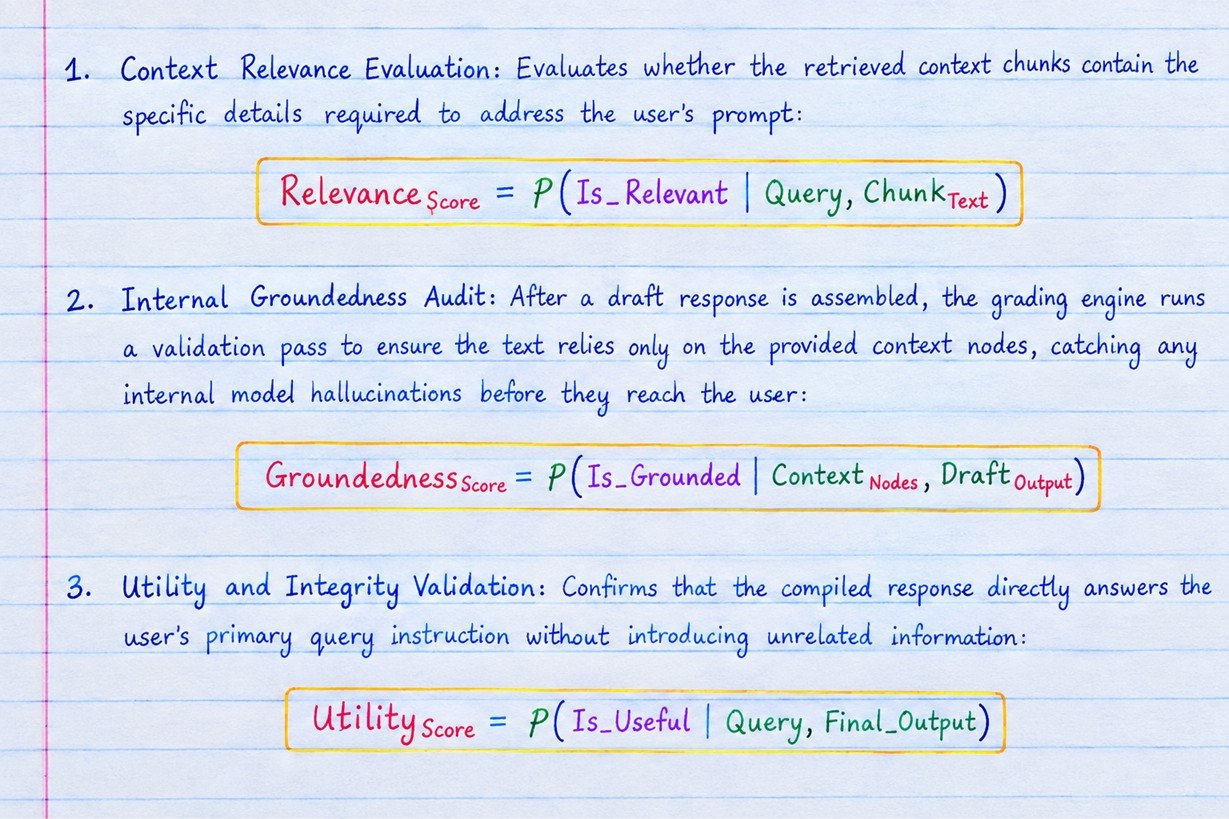 1. Context Relevance Evaluation: Evaluates whether the retrieved context chunks contain the
specific details required to address the user's prompt:
Relevance Score = P(Is_Relevant | Query, Chunk Text)
2. Internal Groundedness Audit: After a draft response is assembled, the grading engine runs
a validation pass to ensure the text relies only on the provided context nodes, catching any
internal model hallucinations before they reach the user:
Groundedness Score = P(Is_Grounded | Context Nodes, Draft Output)
3. Utility and Integrity Validation: Confirms that the compiled response directly answers the
user's primary query instruction without introducing unrelated information:
Utility Score = P(Is_Useful | Query, Final_Output)